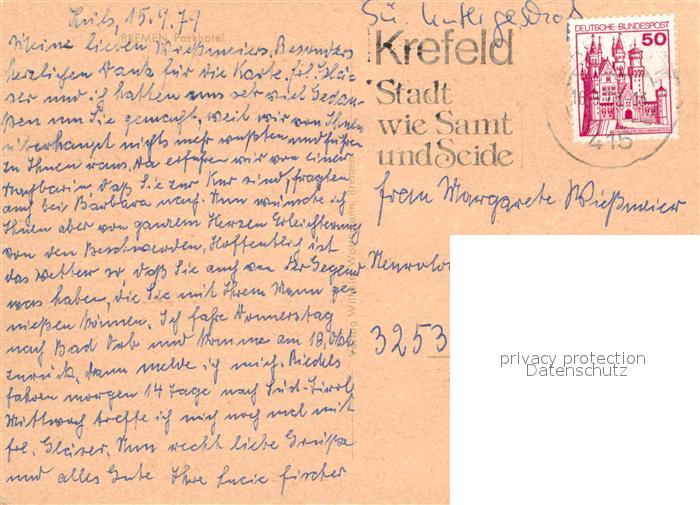 15.9.79
BREMEN, Parkhotel
Meine lieben Wießmeiers, Besonders
herzlichen Dank für die Karte. Frl. Glä-
ser und ich hatten uns sehr viel Gedan-
ken um Sie gemacht, weil wir von Ihnen
überhaupt nichts mehr wußten und fuhren
zu Ihnen raus. Da erfuhren wir von einer
Nachbarin, daß Sie zur Kur sind, fragten
auch bei Barbara nach. Nun wünsche ich
Ihnen aber von ganzem Herzen Erleichterung
von den Beschwerden. Hoffentlich ist
das Wetter so daß Sie auch von der Gegend
was haben, die Sie mit Ihrem Mann ge-
nießen können. Ich fahre Donnerstag
nach Bad Orb und komme am 18. Okt.
zurück, dann melde ich mich. Riedels
fahren morgen 14 Tage nach Süd-Tirol.
Mittwoch treffe ich mich noch mal mit
Frl. Gläser. Nun recht liebe Grüße
und alles Gute Ihre Lucie Fischer
Verlag Wilhelm Bremen
Krefeld
Stadt
wie Samt
und Seide
DEUTSCHE BUNDESPOST
50
415
Frau Margarete Wießmeier
3253
privacy protection
Datenschutz